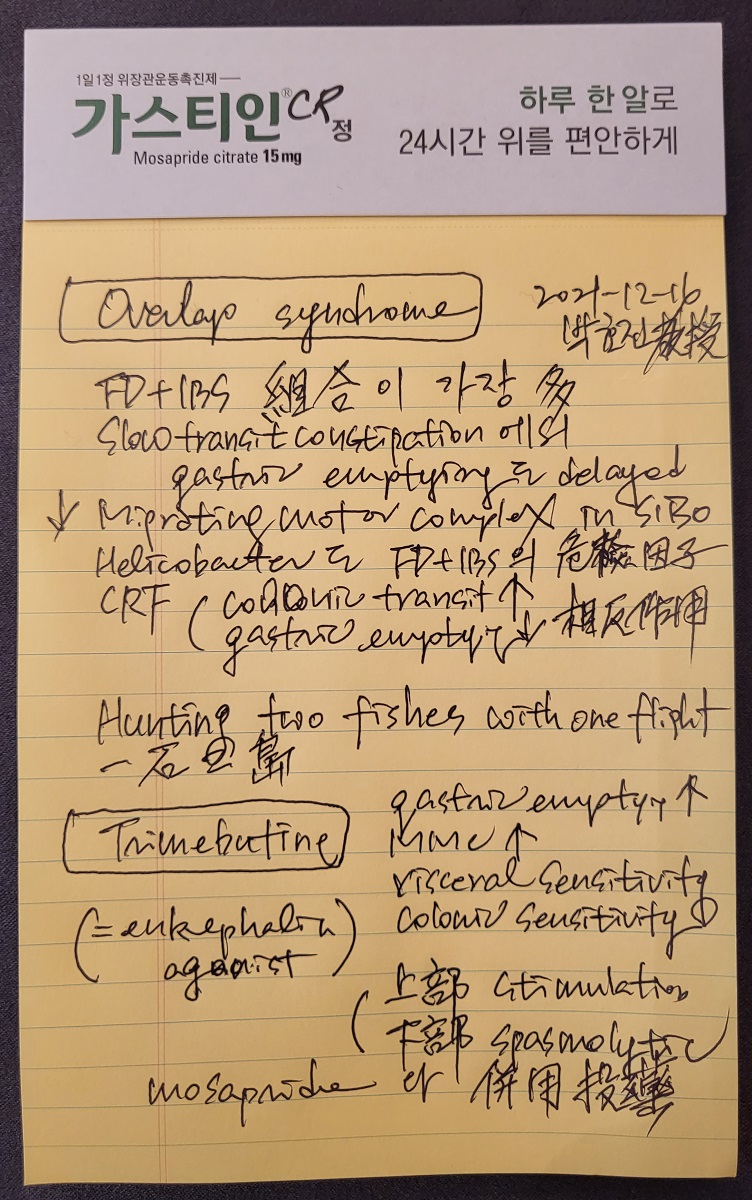 1일1정 위장관운동촉진제
가스티인® CR정
Mosapride citrate 15mg
하루 한 알로
24시간 위를 편안하게
Overlap syndrome
2021-12-16
朴효진 教授
FD+IBS 組合이 가장 多
Slow transit constipation에서
gastric emptying도 delayed
↓ Migrating motor complex in SIBO
Helicobacter도 FD+IBS의 危險因子
CRF ( colonic transit ↑
gastric emptying ↓ 相反作用
Hunting two fishes with one flight
一石二鳥
Trimebutine
(= enkephalin
agonist)
gastric emptying ↑
MMC ↑
visceral sensitivity
colonic sensitivity ↓
( 上部 stimulation
下部 spasmolytic
mosapride와 併用投藥